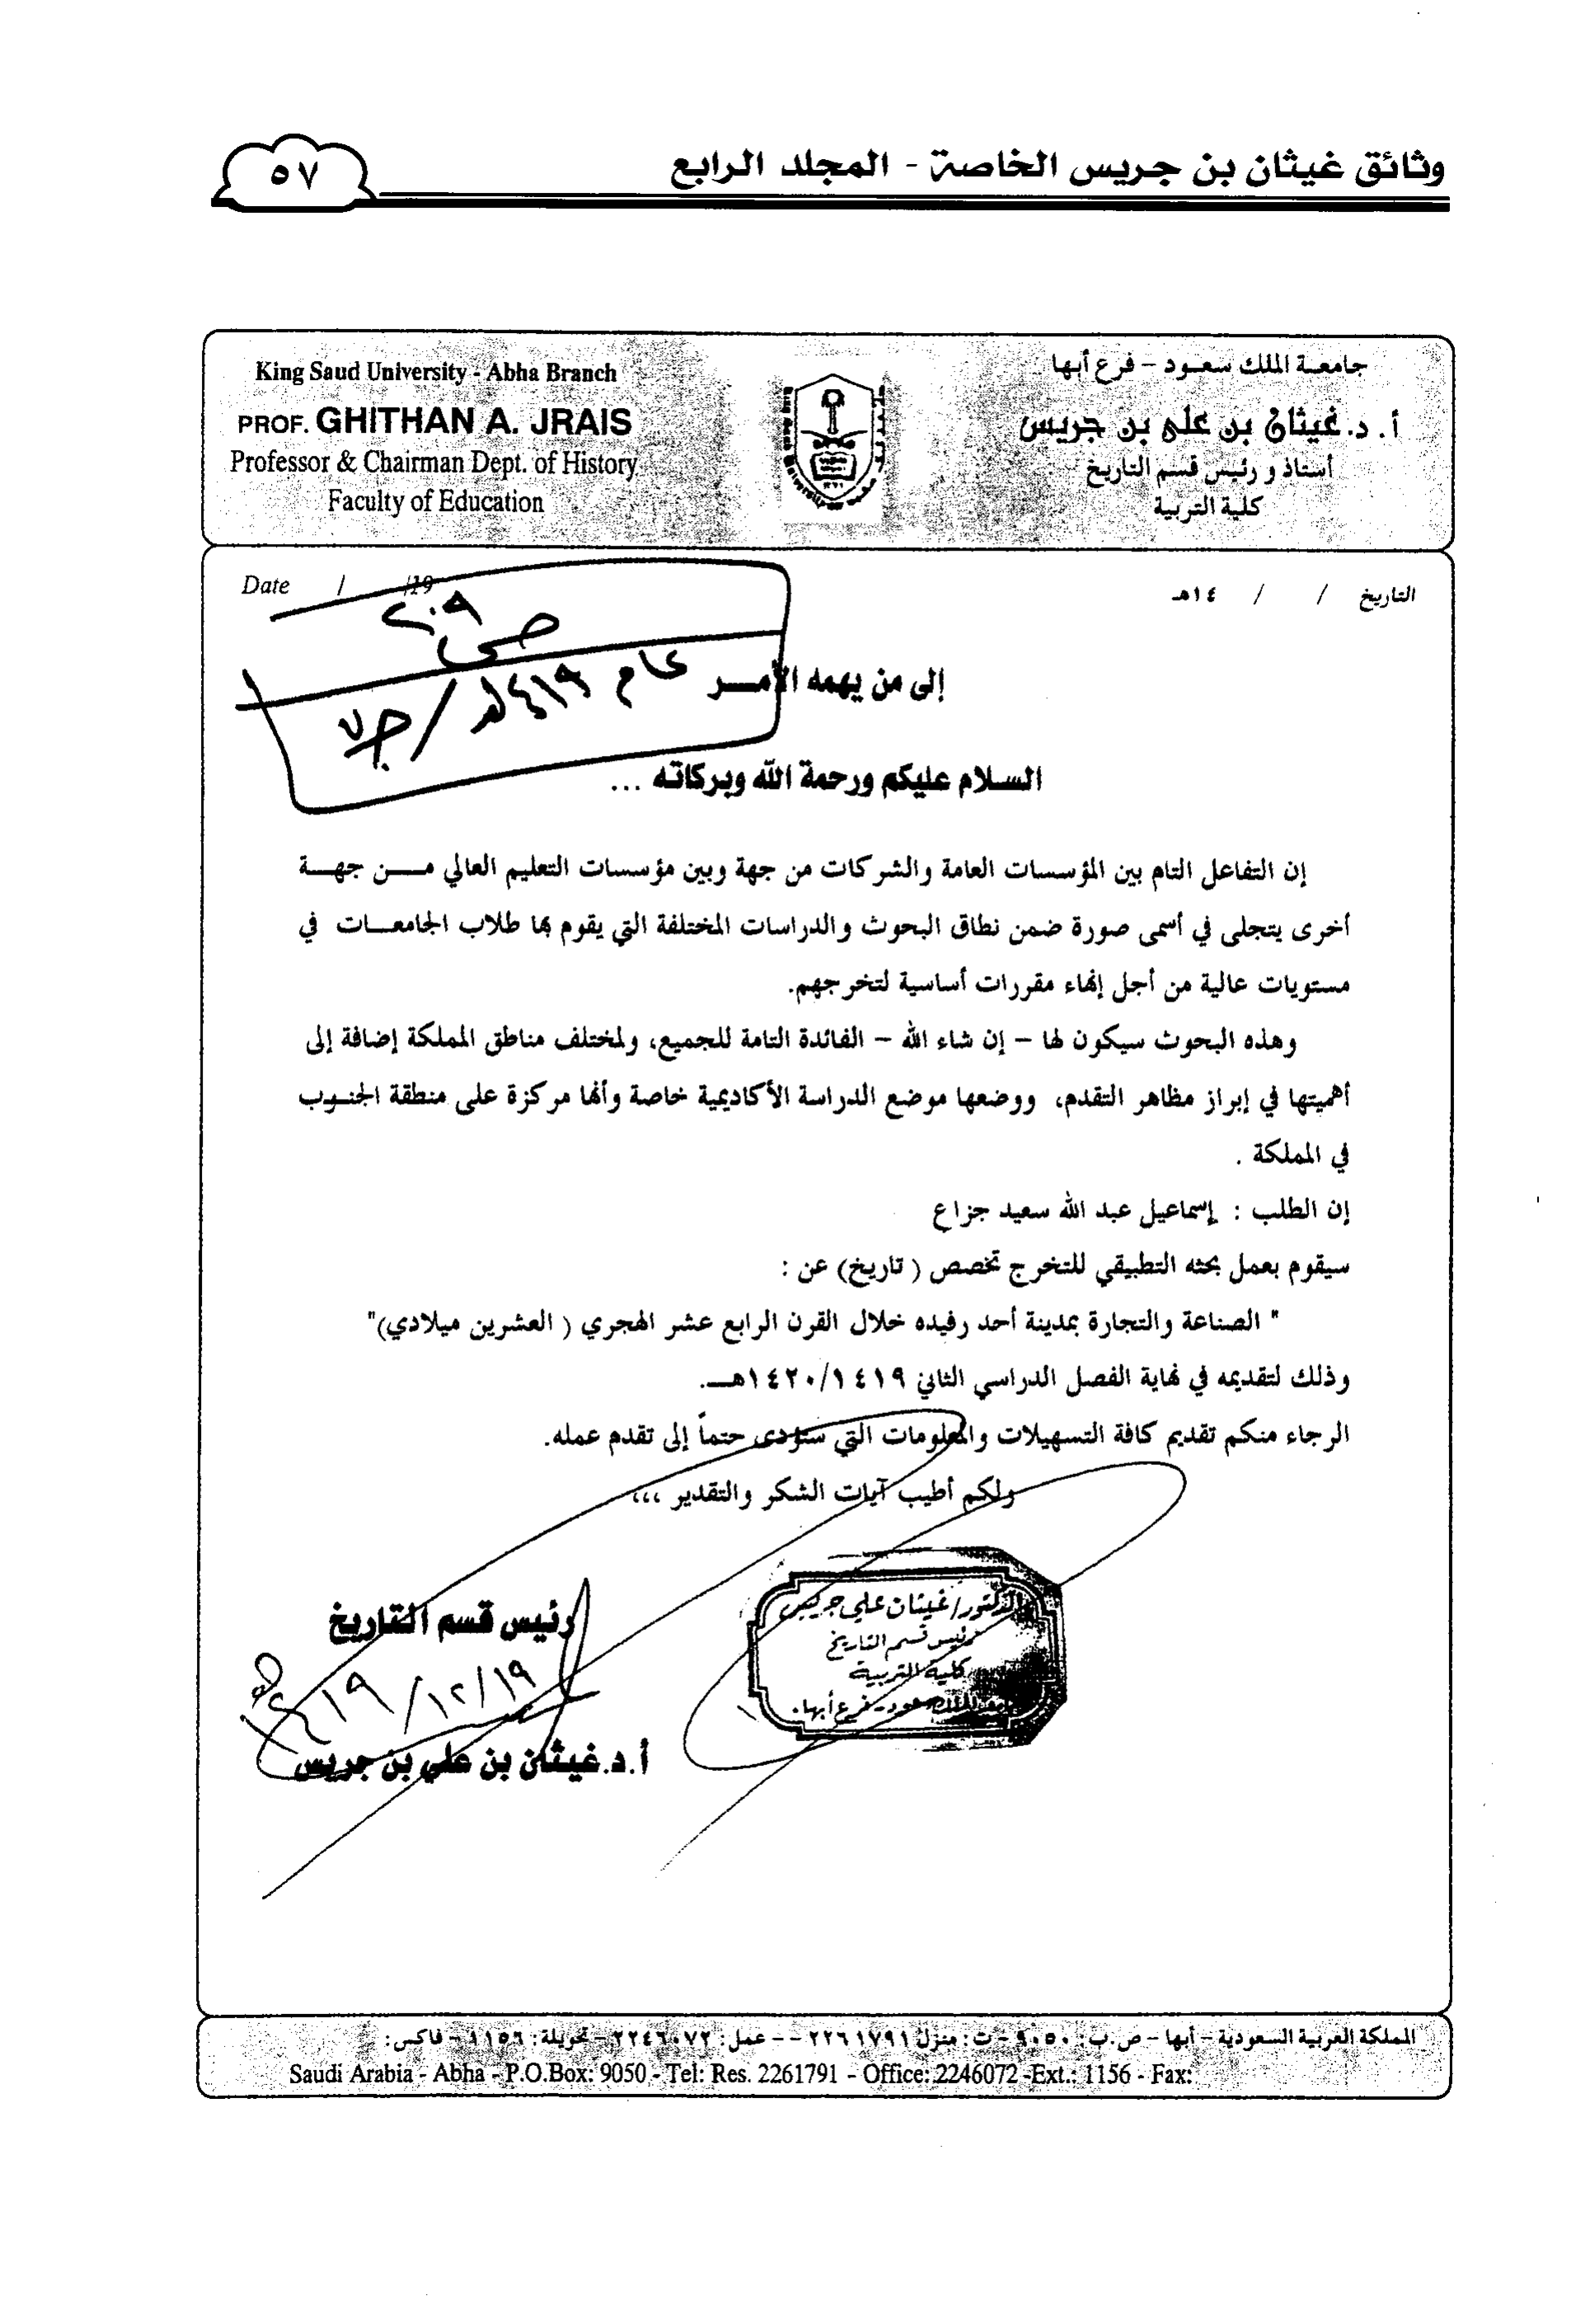 وثائق غيثان بن جريس الخاصة - المجلد الرابع
٥٧
جامعة الملك سعود - فرع أبها
أ. د. غيثان بن على بن جريس
أستاذ و رئيس قسم التاريخ
كلية التربية
King Saud University - Abha Branch
PROF. GHITHAN A. JRAIS
Professor & Chairman Dept. of History
Faculty of Education
التاريخ / / ١٤هـ
Date / /19
ص ٢٠٩
عام ١٤١٩هـ / جـ٧
إلى من يهمه الأمـــر
السلام عليكم ورحمة الله وبركاته ...
إن التفاعل التام بين المؤسسات العامة والشركات من جهة وبين مؤسسات التعليم العالي مــن جهــة
أخرى يتجلى في أسمى صورة ضمن نطاق البحوث والدراسات المختلفة التي يقوم بها طلاب الجامعــات في
مستويات عالية من أجل إنهاء مقررات أساسية لتخرجهم.
وهذه البحوث سيكون لها – إن شاء الله – الفائدة التامة للجميع، ولمختلف مناطق المملكة إضافة إلى
أهميتها في إبراز مظاهر التقدم، ووضعها موضع الدراسة الأكاديمية خاصة وأنها مركزة على منطقة الجنوب
في المملكة .
إن الطلب : إسماعيل عبد الله سعيد جزاع
سيقوم بعمل بحثه التطبيقي للتخرج تخصص ( تاريخ) عن :
" الصناعة والتجارة بمدينة أحد رفيده خلال القرن الرابع عشر الهجري ( العشرين ميلادي)"
وذلك لتقديمه في نهاية الفصل الدراسي الثاني ١٤١٩/١٤٢٠هــ.
الرجاء منكم تقديم كافة التسهيلات والمعلومات التي ستؤدى حتماً إلى تقدم عمله.
ولكم أطيب آيات الشكر والتقدير ،،،
رئيس قسم التاريخ
١٩/١٢/١٤١٩هـ
أ.د.غيثان بن علي بن جريس
الدكتور/ غيثان علي جريس
رئيس قسم التاريخ
كلية التربية
الملك سعود - فرع أبها.
المملكة العربية السعودية - أبها - ص.ب: ٩٠٥٠ - ت: منزل ٢٢٦١٧٩١ - - عمل: ٢٢٤٦٠٧٢ - تحويلة: ١١٥٦ - فاكس:
Saudi Arabia - Abha - P.O.Box: 9050 - Tel: Res. 2261791 - Office: 2246072 -Ext.: 1156 - Fax: